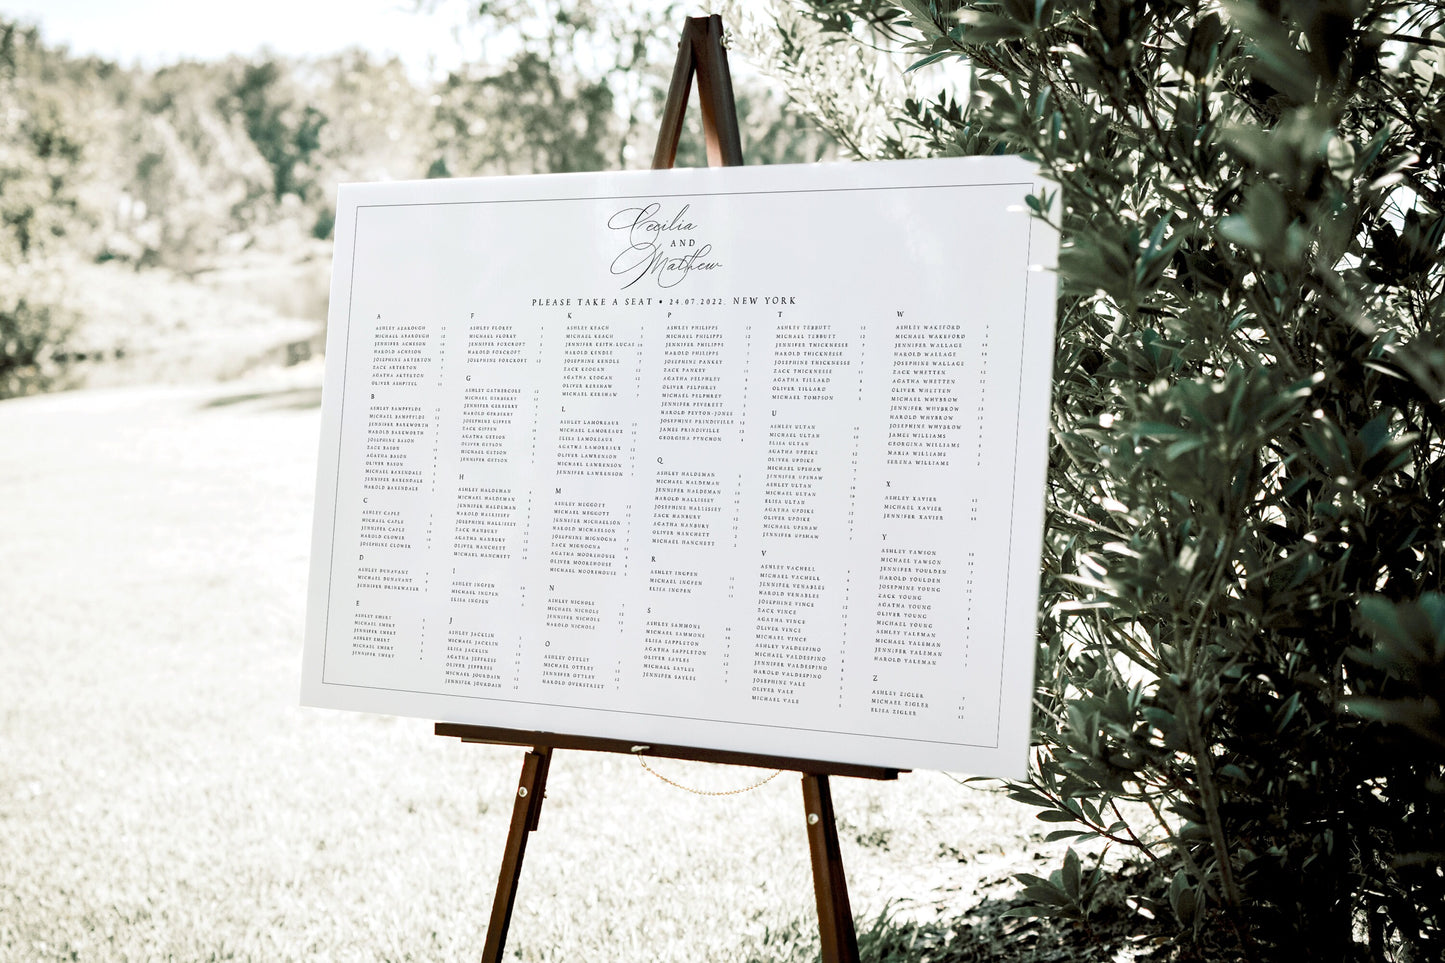 Cecilia
AND
Mathew
PLEASE TAKE A SEAT • 24.07.2022. NEW YORK
A
ASHLEY ABAROUGH 12
MICHAEL ABAROUGH
JENNIFER ACHESON
HAROLD ACHESON
JOSEPHINE ARTERTON
ZACK ARTERTON
AGATHA ARTERTON
OLIVER ASHPITEL
B
ASHLEY BAMPFYLDE
MICHAEL BAMPFYLDE
JENNIFER BARKWORTH
HAROLD BARKWORTH
JOSEPHINE BASON
ZACK BASON
AGATHA BASON
OLIVER BASON
MICHAEL BAXENDALE
JENNIFER BAXENDALE
HAROLD BAXENDALE
C
ASHLEY CAPLE
MICHAEL CAPLE
JENNIFER CAPLE
HAROLD CLOWER
JOSEPHINE CLOWER
D
ASHLEY DUNAVANT
MICHAEL DUNAVANT
JENNIFER DRINKWATER
E
ASHLEY EMERT
MICHAEL EMERT
JENNIFER EMERT
ASHLEY EMERT
MICHAEL EMERT
JENNIFER EMERT
F
ASHLEY FLOREY
MICHAEL FLOREY
JENNIFER FOXCROFT
HAROLD FOXCROFT
JOSEPHINE FOXCROFT
G
ASHLEY GATHERCOLE
MICHAEL GERBERRY
JENNIFER GERBERRY
HAROLD GERBERRY
JOSEPHINE GIFFEN
ZACK GIFFEN
AGATHA GETSON
OLIVER GETSON
MICHAEL GETSON
JENNIFER GETSON
H
ASHLEY HALDEMAN
MICHAEL HALDEMAN
JENNIFER HALDEMAN
HAROLD HALLISSEY
JOSEPHINE HALLISSEY
ZACK HANBURY
AGATHA HANBURY
OLIVER HANCHETT
MICHAEL HANCHETT
I
ASHLEY INGPEN
MICHAEL INGPEN
ELISA INGPEN
J
ASHLEY JACKLIN
MICHAEL JACKLIN
ELISA JACKLIN
AGATHA JEFFRESS
OLIVER JEFFRESS
MICHAEL JOURDAIN
JENNIFER JOURDAIN
K
ASHLEY KEACH
MICHAEL KEACH
JENNIFER KEITH-LUCAS
HAROLD KENDLE
JOSEPHINE KENDLE
ZACK KEOGAN
AGATHA KEOGAN
OLIVER KERSHAW
MICHAEL KERSHAW
L
ASHLEY LAMOREAUX
MICHAEL LAMOREAUX
ELISA LAMOREAUX
AGATHA LAMOREAUX
OLIVER LAWRENSON
MICHAEL LAWRENSON
JENNIFER LAWRENSON
M
ASHLEY MEGGOTT
MICHAEL MEGGOTT
JENNIFER MICHAELSON
HAROLD MICHAELSON
JOSEPHINE MIGNOGNA
ZACK MIGNOGNA
AGATHA MOOREHOUSE
OLIVER MOOREHOUSE
MICHAEL MOOREHOUSE
N
ASHLEY NICHOLS
MICHAEL NICHOLS
JENNIFER NICHOLS
HAROLD NICHOLS
O
ASHLEY OTTLEY
MICHAEL OTTLEY
JENNIFER OTTLEY
HAROLD OVERSTREET
P
ASHLEY PHILIPPS
MICHAEL PHILIPPS
JENNIFER PHILIPPS
HAROLD PHILIPPS
JOSEPHINE PANKEY
ZACK PANKEY
AGATHA PELPHREY
OLIVER PELPHREY
MICHAEL PELPHREY
JENNIFER PEVERETT
HAROLD PEYTON-JONES
JOSEPHINE PRINDIVILLE
JAMES PRINDIVILLE
GEORGINA PYNCHON
Q
ASHLEY HALDEMAN
MICHAEL HALDEMAN
JENNIFER HALDEMAN
HAROLD HALLISSEY
JOSEPHINE HALLISSEY
ZACK HANBURY
AGATHA HANBURY
OLIVER HANCHETT
MICHAEL HANCHETT
R
ASHLEY INGPEN
MICHAEL INGPEN
ELISA INGPEN
S
ASHLEY SAMMONS
MICHAEL SAMMONS
ELISA SAPPLETON
AGATHA SAPPLETON
OLIVER SAYLES
MICHAEL SAYLES
JENNIFER SAYLES
T
ASHLEY TEBBUTT
MICHAEL TEBBUTT
JENNIFER THICKNESSE
HAROLD THICKNESSE
JOSEPHINE THICKNESSE
ZACK THICKNESSE
AGATHA TILLARD
OLIVER TILLARD
MICHAEL TOMPSON
U
ASHLEY ULTAN
MICHAEL ULTAN
ELISA ULTAN
AGATHA UPDIKE
OLIVER UPDIKE
MICHAEL UPSHAW
JENNIFER UPSHAW
ASHLEY ULTAN
MICHAEL ULTAN
ELISA ULTAN
AGATHA UPDIKE
OLIVER UPDIKE
MICHAEL UPSHAW
JENNIFER UPSHAW
V
ASHLEY VACHELL
MICHAEL VACHELL
JENNIFER VENABLES
HAROLD VENABLES
JOSEPHINE VINCE
ZACK VINCE
AGATHA VINCE
OLIVER VINCE
MICHAEL VINCE
ASHLEY VALDESPINO
MICHAEL VALDESPINO
JENNIFER VALDESPINO
HAROLD VALDESPINO
JOSEPHINE VALE
OLIVER VALE
MICHAEL VALE
W
ASHLEY WAKEFORD
MICHAEL WAKEFORD
JENNIFER WALLAGE
HAROLD WALLAGE
JOSEPHINE WALLAGE
ZACK WHETTEN
AGATHA WHETTEN
OLIVER WHETTEN
MICHAEL WHYBROW
JENNIFER WHYBROW
HAROLD WHYBROW
JOSEPHINE WHYBROW
JAMES WILLIAMS
GEORGINA WILLIAMS
MARIA WILLIAMS
SERENA WILLIAMS
X
ASHLEY XAVIER
MICHAEL XAVIER
JENNIFER XAVIER
Y
ASHLEY YAWSON
MICHAEL YAWSON
JENNIFER YOULDEN
HAROLD YOULDEN
JOSEPHINE YOUNG
ZACK YOUNG
AGATHA YOUNG
OLIVER YOUNG
MICHAEL YOUNG
ASHLEY YALEMAN
MICHAEL YALEMAN
JENNIFER YALEMAN
HAROLD YALEMAN
Z
ASHLEY ZIGLER
MICHAEL ZIGLER
ELISA ZIGLER